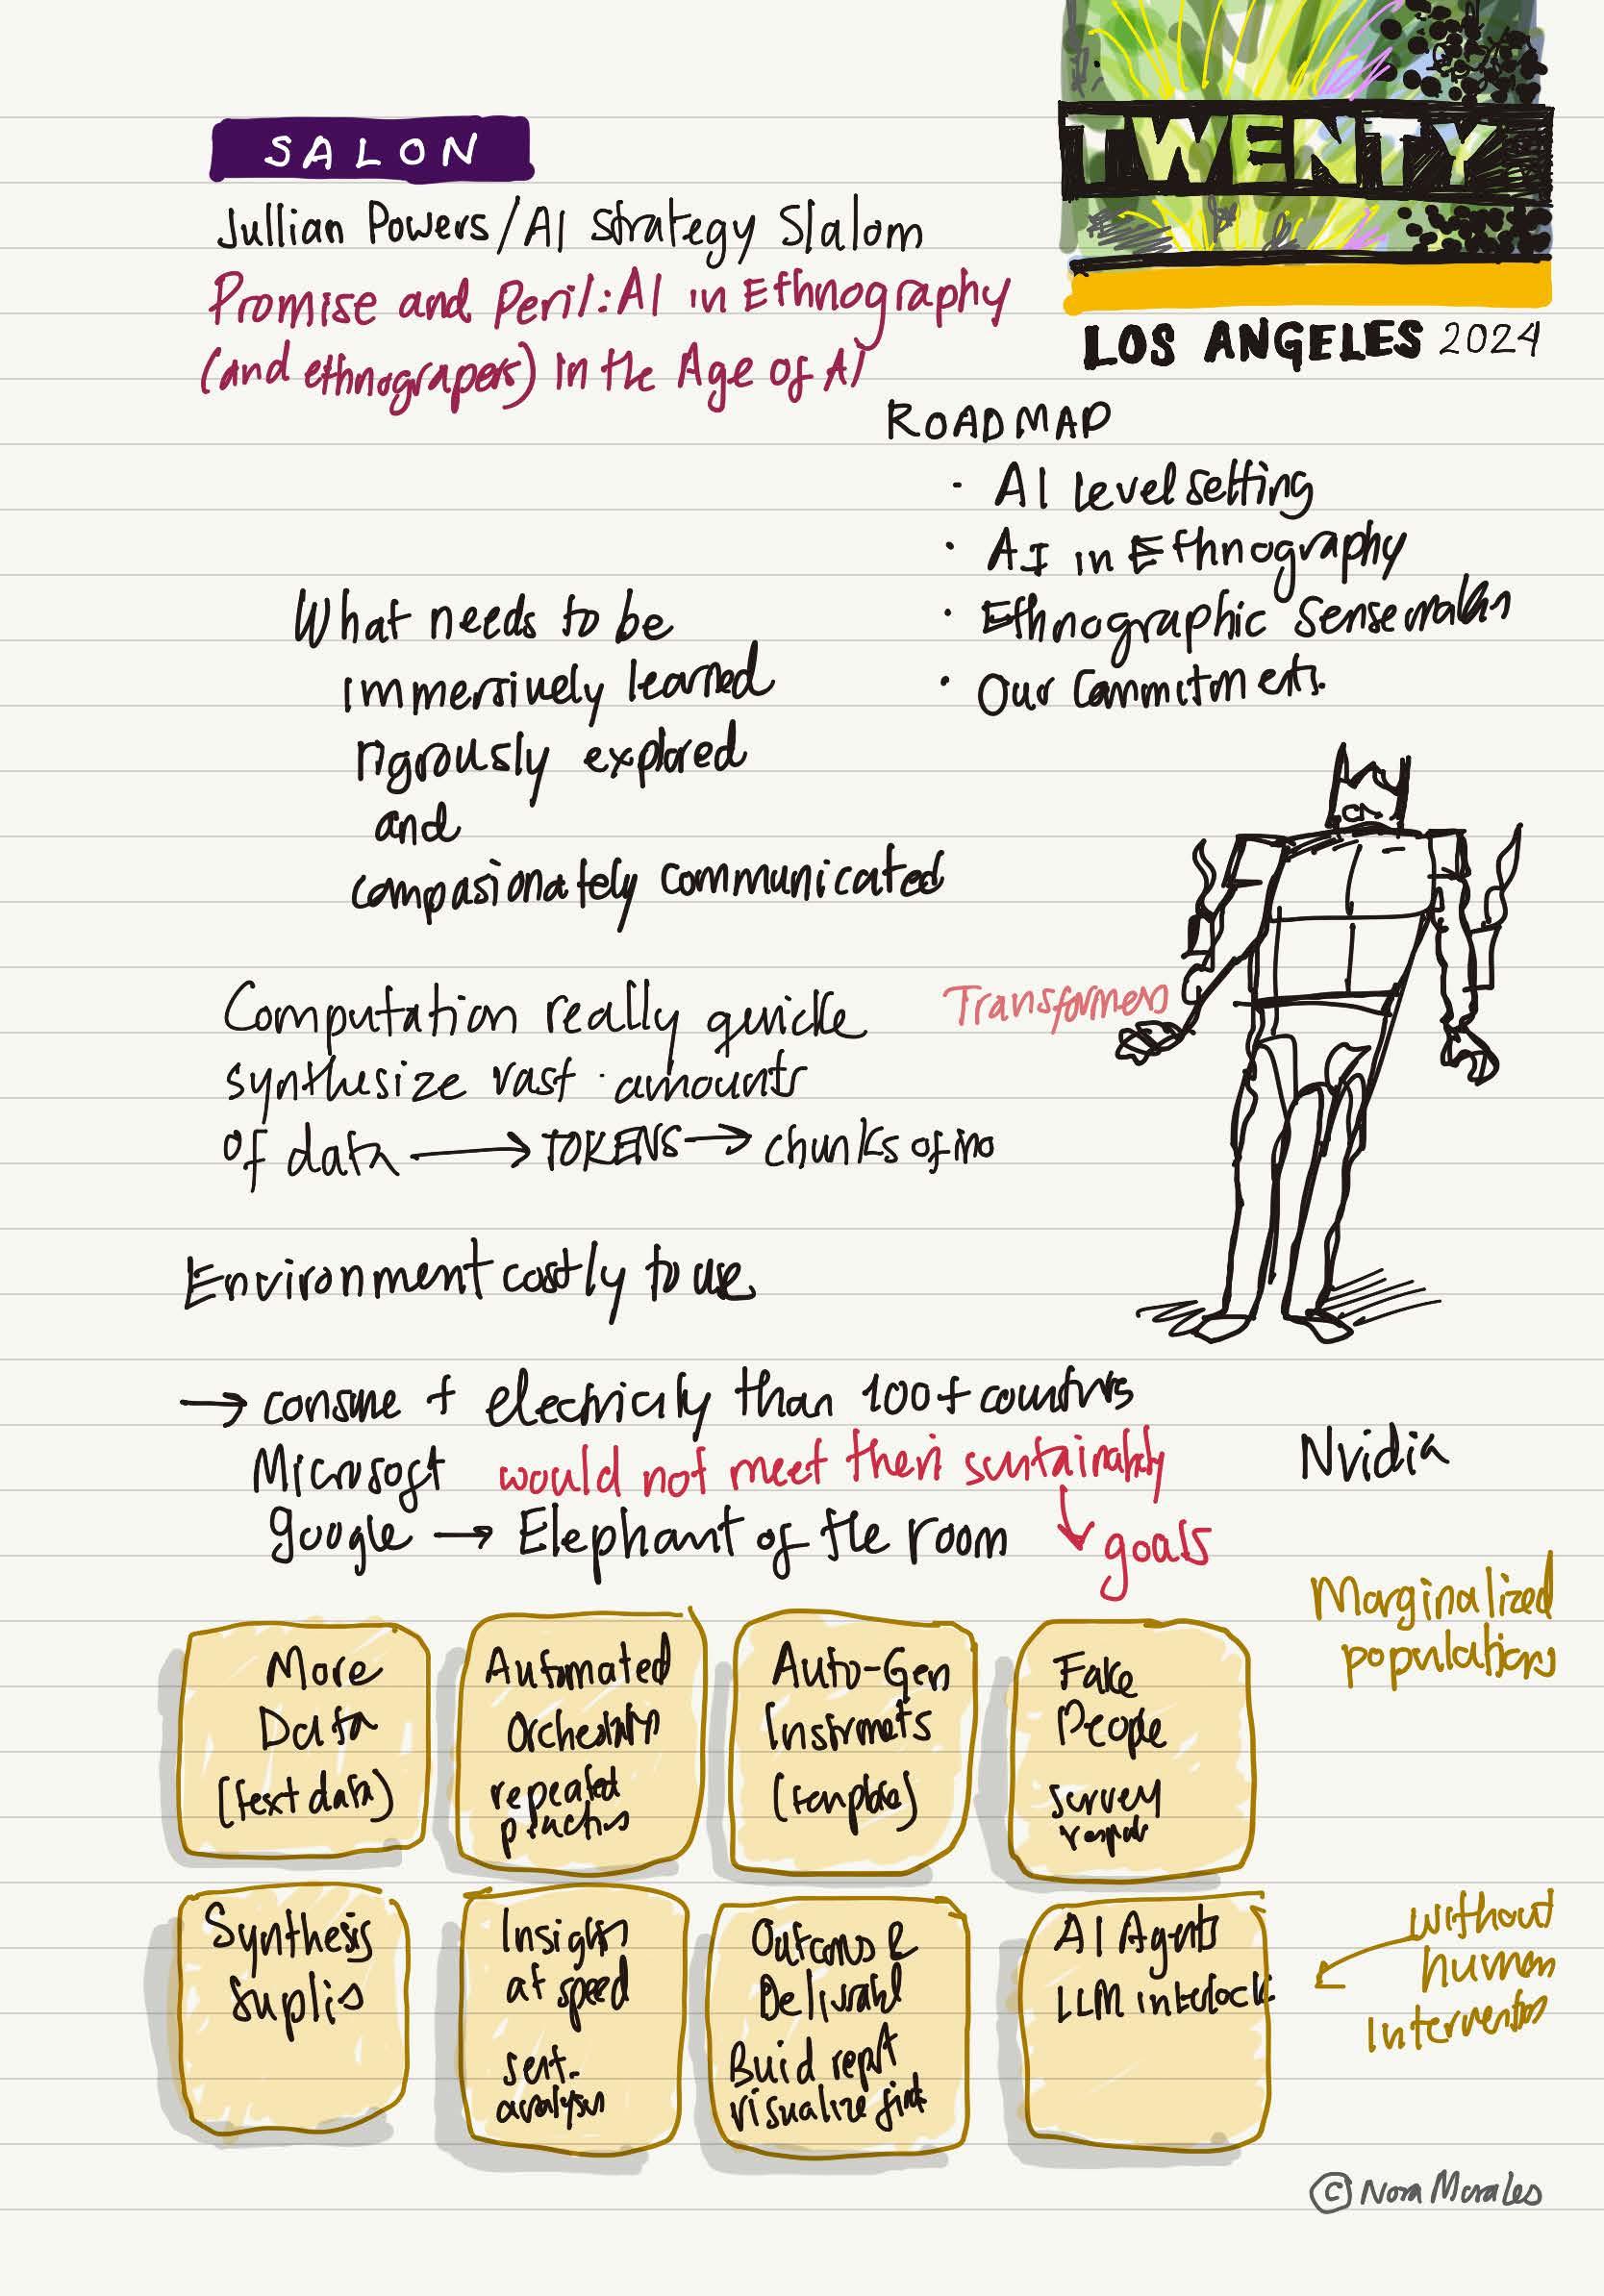 SALON
Jullian Powers/AI Strategy Slalom
Promise and Peril: AI in Ethnography
(and ethnograpers) in the Age of AI
TWENTY
LOS ANGELES 2024
ROADMAP
· AI Level setting
· AI in Ethnography
· Ethnographic Sense
· Our Commitments.
What needs to be
immersively learned
rigrously explored
and
compasionately communicated
Computation really quicke
synthesize vast amounts
of data → TOKENS → chunks of
Transformers
Environment costly to use
→ consume + electricity than 100+ countrys
Microsoft would not meet their
Google → Elephant of the room ↓ goals
Nvidia
Marginalized
populations
More
Data
(text data)
Automated
repeated
Auto-Gen
Fake
People
survey
Synthesis
Insights
at speed
sent-
analysis
Outcoms &
report
visualize
AI Agents
LLM interlock
without
human
intervention
© Nora Morales